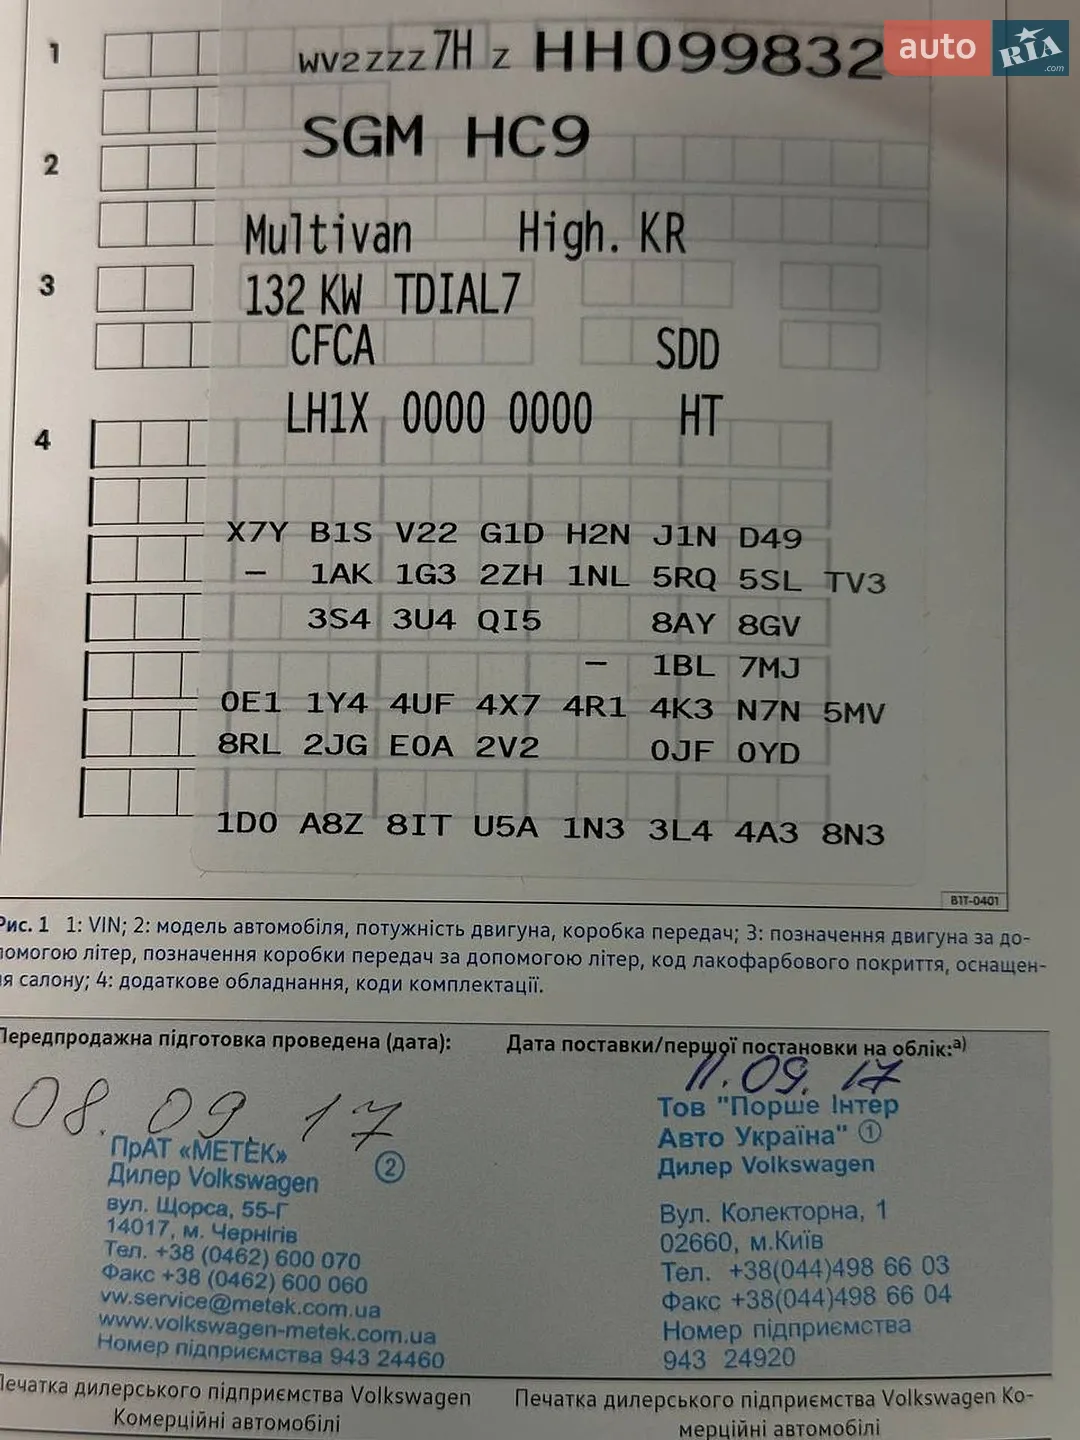 auto RIA .com
1 WV2ZZZ7HZ HH099832
SGM HC9
2
Multivan High. KR
3 132 KW TDIAL7
CFCA SDD
LH1X 0000 0000 HT
4
X7Y B1S V22 G1D H2N J1N D49
– 1AK 1G3 2ZH 1NL 5RQ 5SL TV3
3S4 3U4 QI5 8AY 8GV
– 1BL 7MJ
0E1 1Y4 4UF 4X7 4R1 4K3 N7N 5MV
8RL 2JG E0A 2V2 0JF 0YD
1D0 A8Z 8IT U5A 1N3 3L4 4A3 8N3
B1T-0401
Рис. 1 1: VIN; 2: модель автомобіля, потужність двигуна, коробка передач; 3: позначення двигуна за до-
помогою літер, позначення коробки передач за допомогою літер, код лакофарбового покриття, оснащен-
ня салону; 4: додаткове обладнання, коди комплектації.
Передпродажна підготовка проведена (дата):
08.09.17
ПрАТ «МЕТЕК»
Дилер Volkswagen 2
вул. Щорса, 55-Г
14017, м. Чернігів
Тел. +38 (0462) 600 070
Факс +38 (0462) 600 060
vw.service@metek.com.ua
www.volkswagen-metek.com.ua
Номер підприємства 943 24460
Печатка дилерського підприємства Volkswagen
Комерційні автомобілі
Дата поставки/першої постановки на облік:а)
11.09.17
Тов "Порше Інтер
Авто Україна" 1
Дилер Volkswagen
Вул. Колекторна, 1
02660, м.Київ
Тел. +38(044)498 66 03
Факс +38(044)498 66 04
Номер підприємства
943 24920
Печатка дилерського підприємства Volkswagen Ко-
мерційні автомобілі